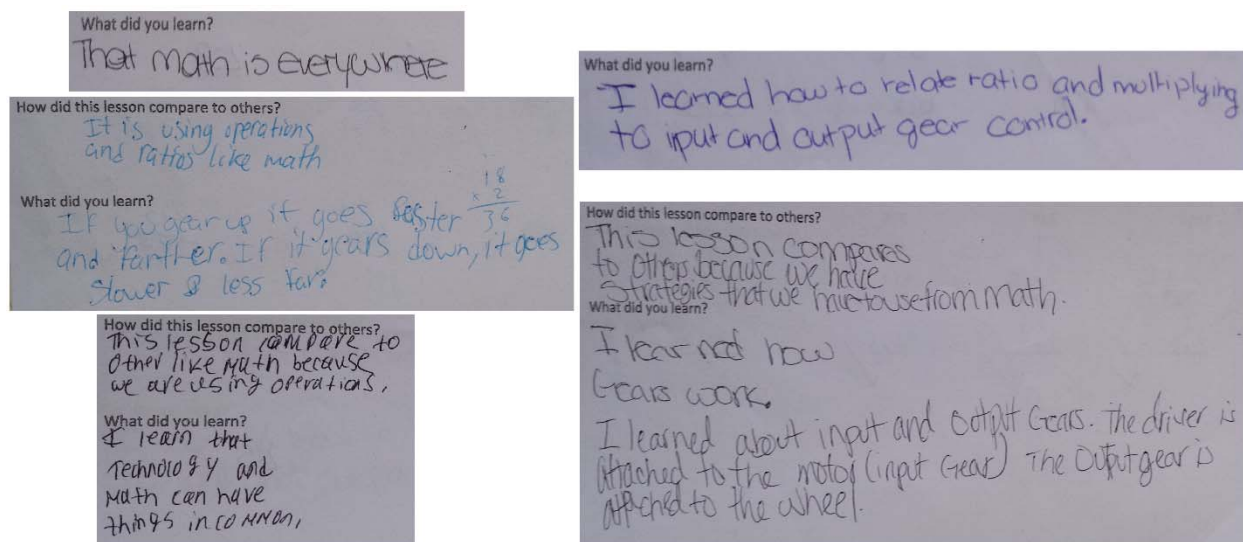 What did you learn?
That math is everywhere
How did this lesson compare to others?
It is using operations
and ratios like math
What did you learn?
18
x 2
36
If you gear up it goes faster
and farther. If it gears down, it goes
slower & less far.
How did this lesson compare to others?
This lesson compare to
other like Math because
we are using operations.
What did you learn?
I learn that
Technology and
Math can have
things in common,
What did you learn?
I learned how to relate ratio and multiplying
to iput and output gear control.
How did this lesson compare to others?
This lesson compares
to others because we have
strategies that we have to use from math.
What did you learn?
I learned how
Gears work.
I learned about input and output Gears. The driver is
attached to the motor (input Gear) The Output gear is
attached to the wheel.